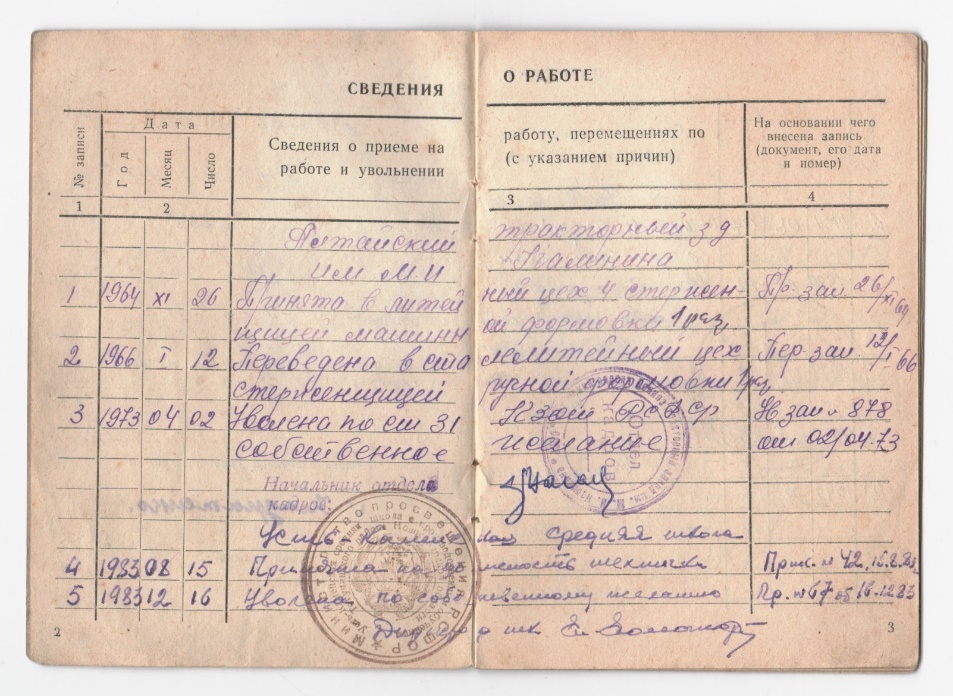 СВЕДЕНИЯ О РАБОТЕ
№ записи
Дата
Год
Месяц
Число
Сведения о приеме на работу, перемещениях по
работе и увольнении (с указанием причин)
На основании чего
внесена запись
(документ, его дата
и номер)
1 2 3 4
Алтайский тракторный з д
им М И Калинина
1 1964 XI 26 Принята в литейный цех 4 стержен-
щицей машинной формовки 1 раз.
2 1966 I 12 Переведена в сталелитейный цех
стерженщицей ручной формовки 1 раз.
Пер. зап. 12/I 66
3 1973 04 02 Уволена по ст 31 КЗОТ РСФСР
собственное желание
878
от 02/04.73
Начальник отдела
кадров:
средняя школа
4 1983 08 15 Принята на должность 
Прик. № 42, 15.8.83
5 1983 12 16 Уволена по собственному желанию
Пр. № 67 от 16.12.83
2 3